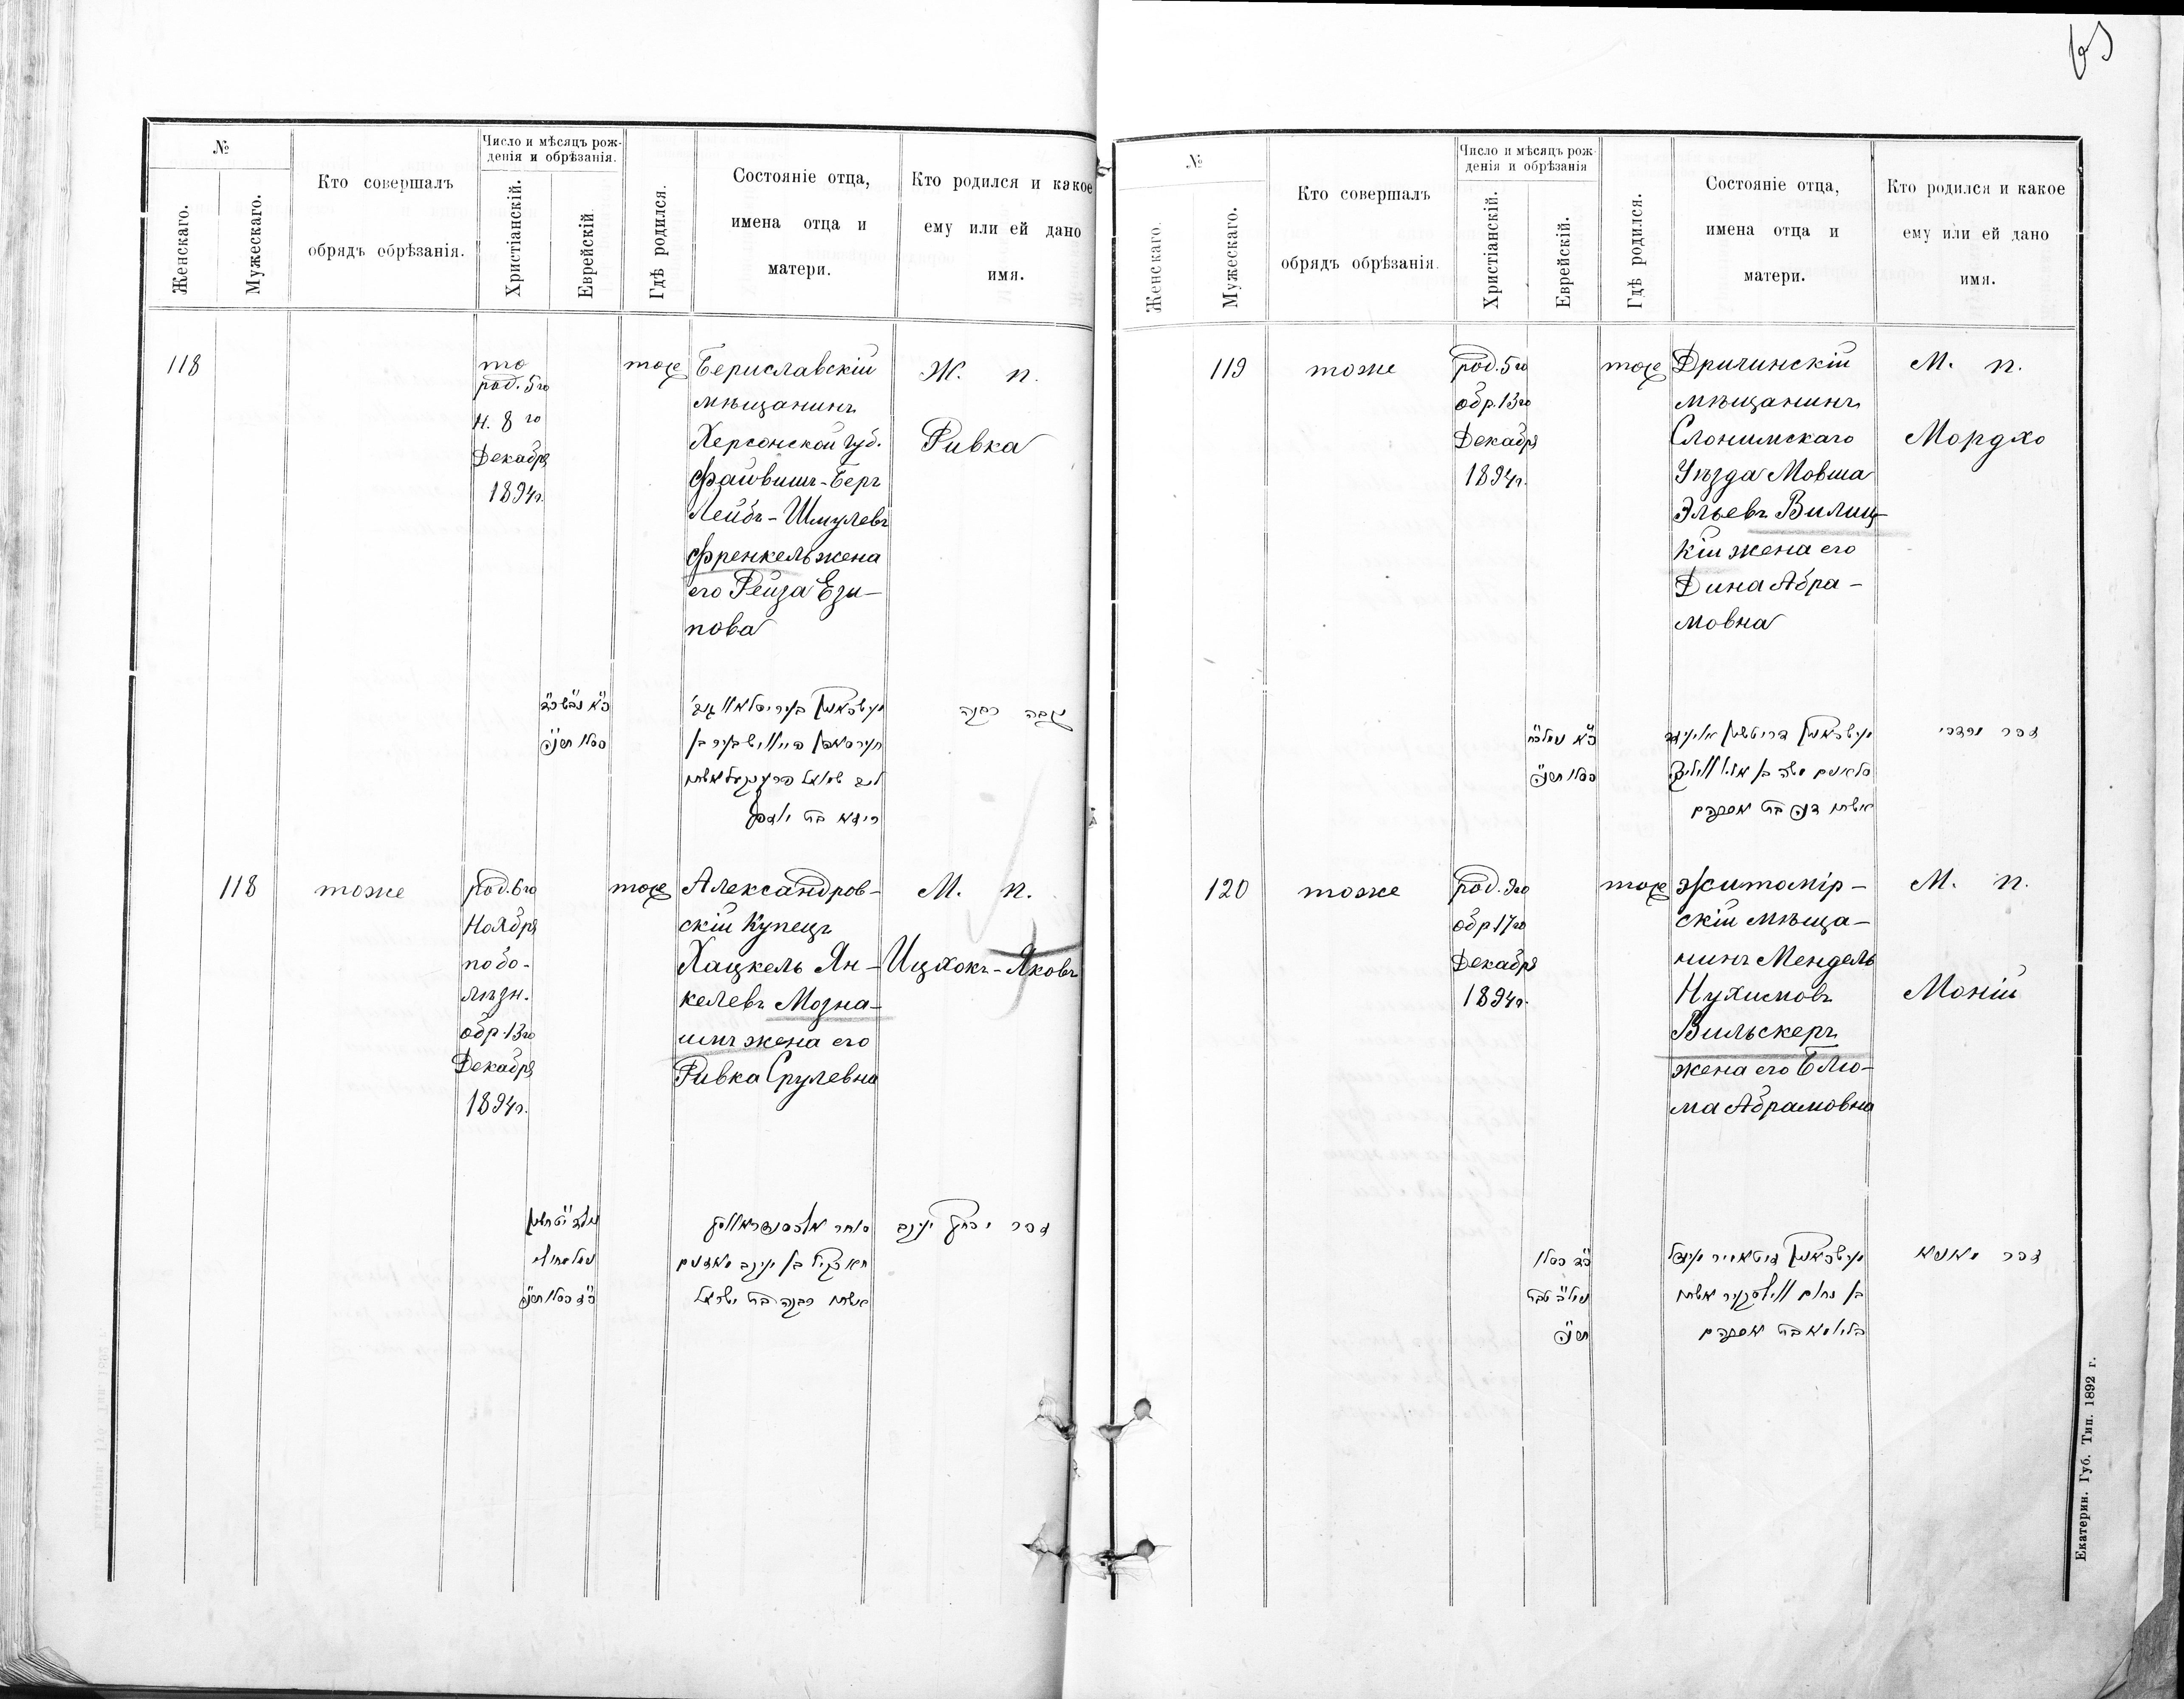 №
Женскаго.
Мужескаго.
Кто совершалъ
обрядъ обрѣзанія.
Число и мѣсяцъ рож-
денія и обрѣзанія.
Христіанскій.
Еврейскій.
Гдѣ родился.
Состояніе отца,
имена отца и
матери.
Кто родился и какое
ему или ей дано
имя.
118
род. 5го
н. 8го
Декабря
1894г.
тоже
Бериславскій
мѣщанинъ
Херсонской губ.
Файвишъ-Беръ
Лейбъ-Шмулевъ
Френкель жена
его Рейза
Ж. п.
Ривка
נקבה רבקה
118
тоже
род. 6го
Ноября
по бо-
лѣзн.
обр. 13го
Декабря
1894г.
тоже
Александров-
скій Купецъ
Хацкель Ян-
келевъ Мозна-
имъ жена его
Ривка Срулевна
М. п.
Ицхокъ-Яковъ
זכר יצחק יעקב
אשתו רבקה בת ישראל
63
№
Женскаго.
Мужескаго.
Кто совершалъ
обрядъ обрѣзанія.
Число и мѣсяцъ рож-
денія и обрѣзанія
Христіанскій.
Еврейскій.
Гдѣ родился.
Состояніе отца,
имена отца и
матери.
Кто родился и какое
ему или ей дано
имя.
119
тоже
род. 5го
обр. 13го
Декабря
1894г.
тоже
Дричинскій
мѣщанинъ
Слонимскаго
Уѣзда Мовша
Эльевъ Вилиц-
кій жена его
Дина Абра-
мовна
М. п.
Мордхо
זכר מרדכי
אשתו דינה בת אברהם
120
тоже
род. 9го
обр 17го
Декабря
1894г.
тоже
Житомір-
скій мѣща-
нинъ Мендель
Нухимовъ
Вильскеръ
жена его Блю-
ма Абрамовна
М. п.
Моній
זכר מאניא
בלומא בת אברהם
Екатерин. Губ. Тип. 1892 г.